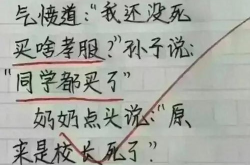 气愤道：“我还没死
买啥孝服？”孙子说：
“同学都买了”
奶奶点头说：“原
来是校长死了”